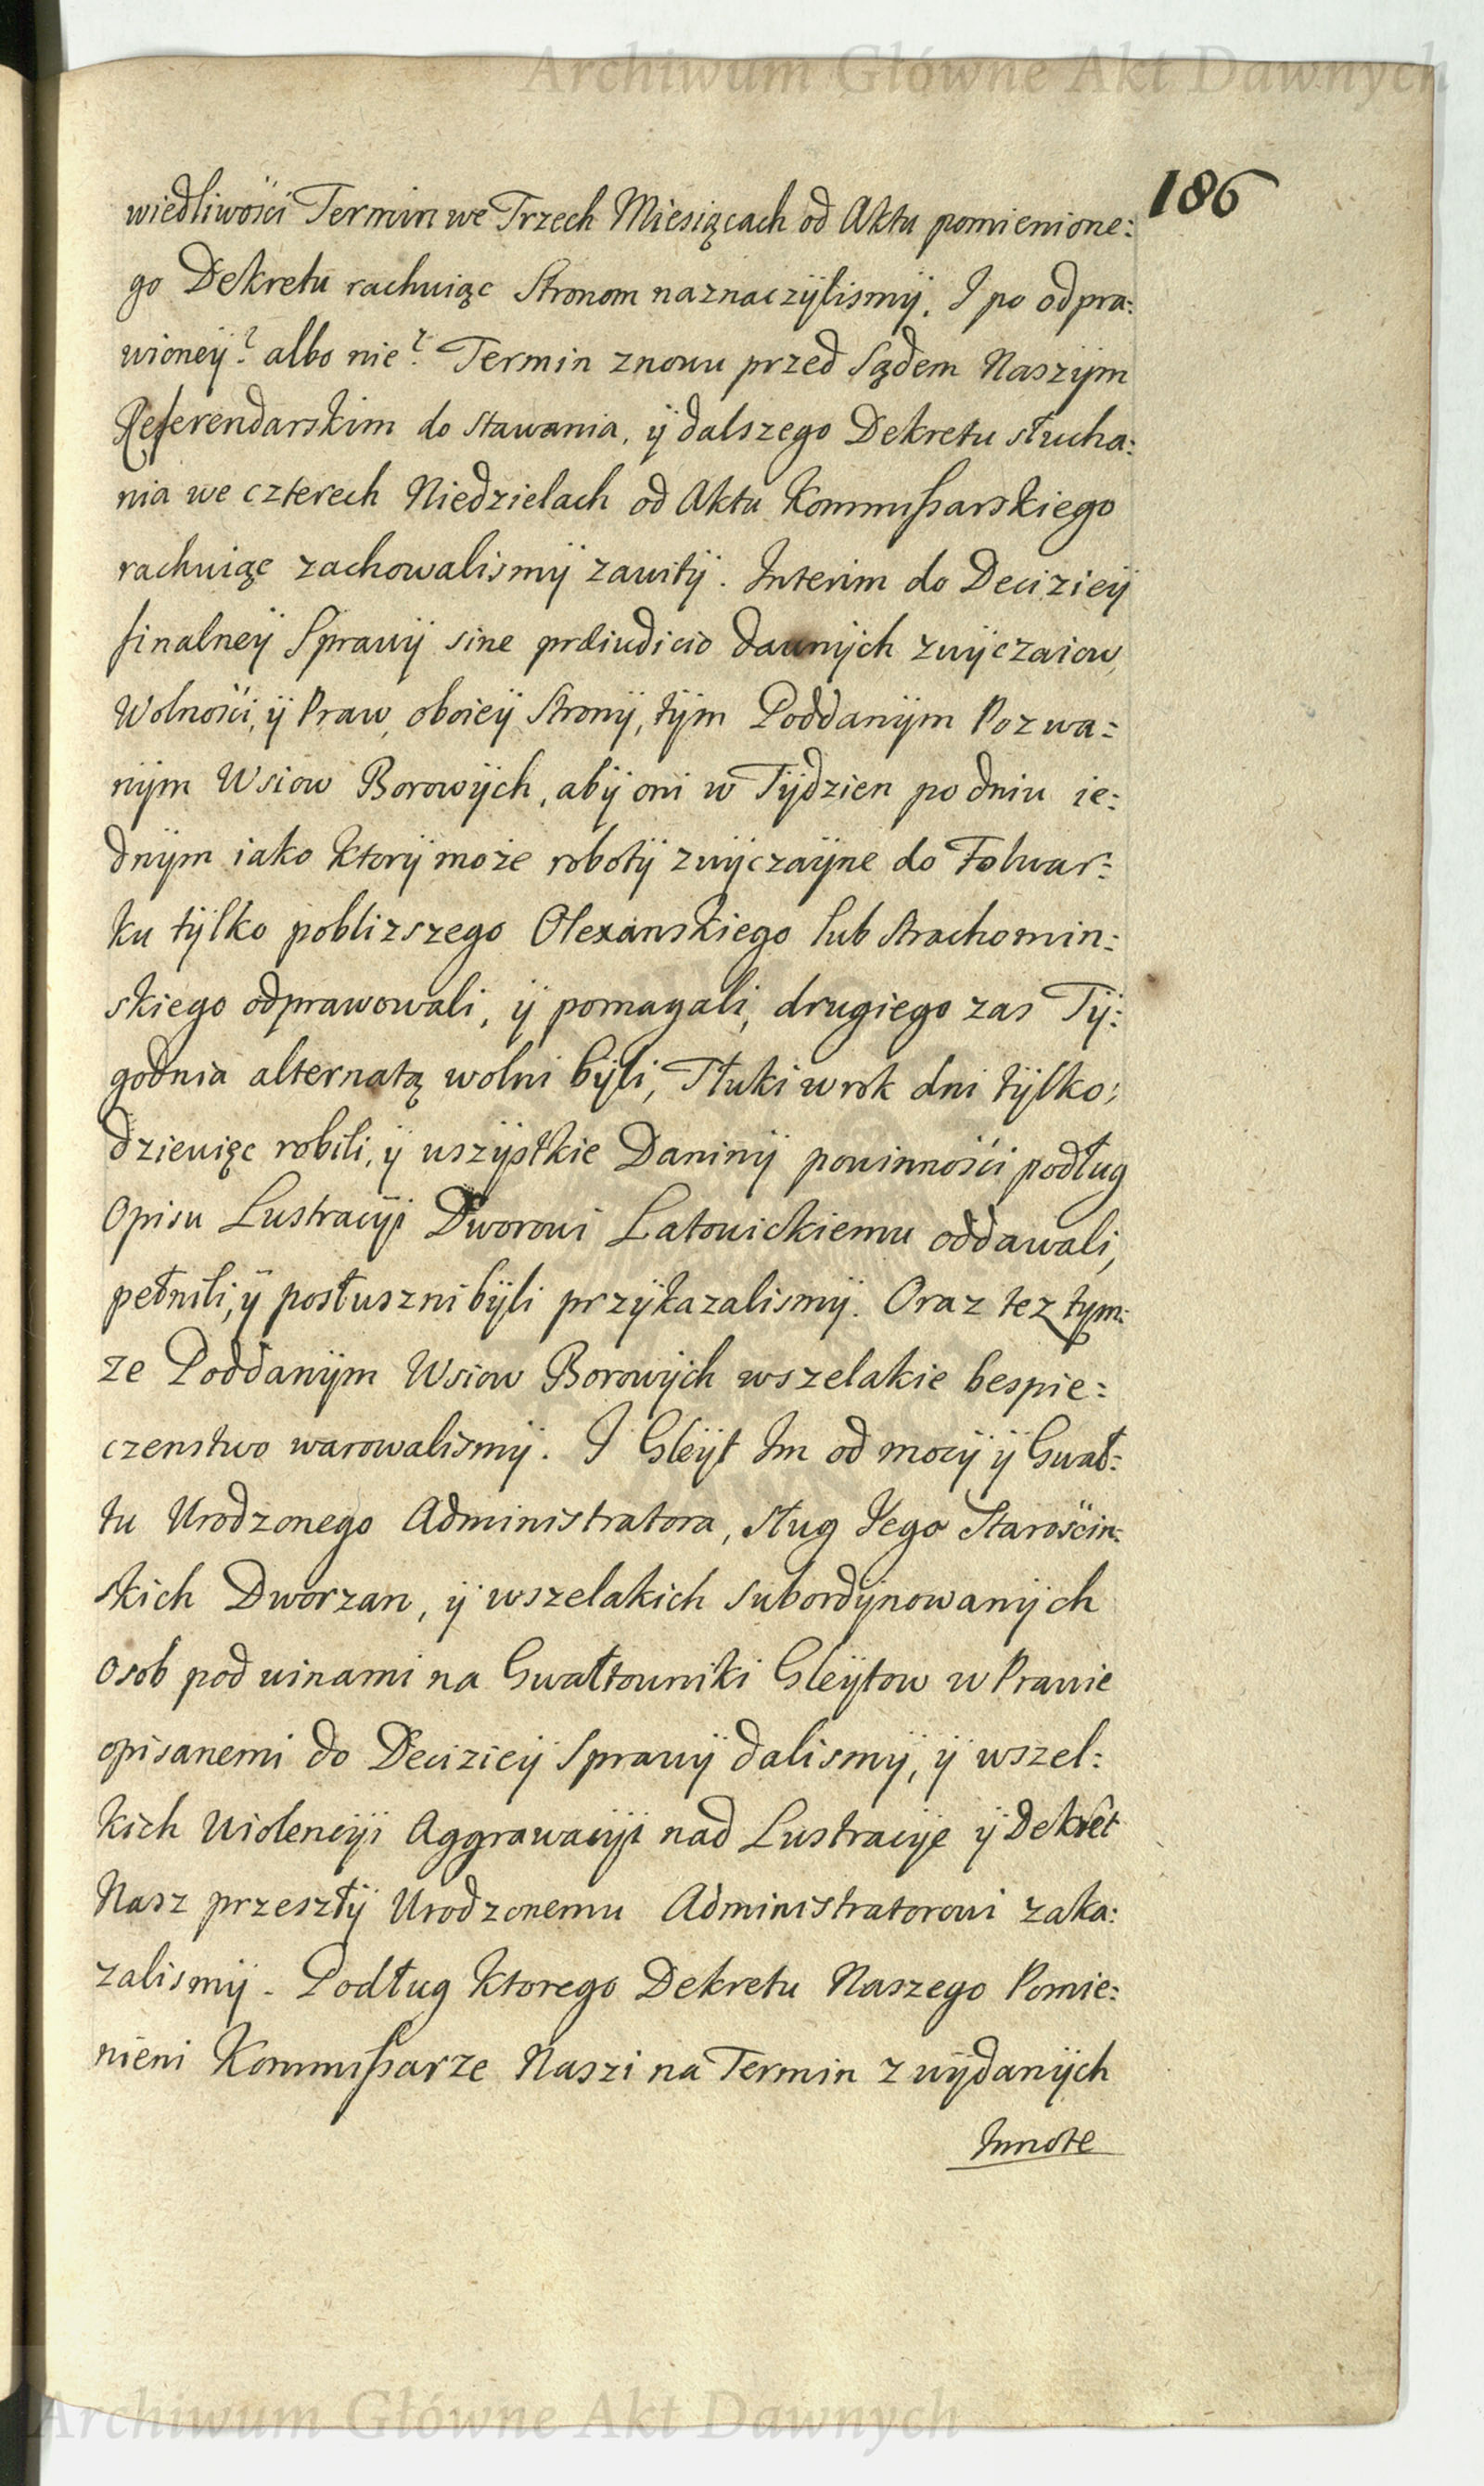 Archiwum Główne Akt Dawnych
186
wiedliwości Termin we Trzech Miesiącach od Aktu pomienione:
go Dekretu rachuiąc Stronom naznaczÿlismÿ. I po odpra:
wioneÿ? albo nie? Termin znowu przed Sądem Naszÿm
Referendarskim do stawania, ÿ dalszego Dekretu słucha:
nia we czterech Niedzielach od Aktu Kommißarskiego
rachuiąc zachowalismÿ zawitÿ. Interim do Decizieÿ
finalneÿ Sprawÿ sine præiudicio dawnÿch zwÿczaiow
Wolności, ÿ Praw, oboieÿ Stronÿ, tÿm Poddanÿm Pozwa=
nÿm Wsiow Borowÿch, abÿ oni w Tÿdzien po dniu ie:
dnÿm iako ktorÿ może robotÿ zwÿczaÿne do Folwar:
ku tÿlko poblizszego Olexanskiego lub Strachomin:
skiego odprawowali, ÿ pomagali, drugiego zas Tÿ:
godnia alternatą wolni bÿli, Tłuki w rok dni tÿlko:
dziewięc robili, ÿ wszÿstkie Daninÿ powinności podług
Opisu Lustracÿi Dworowi Latowickiemu oddawali,
pełnili, ÿ posłuszni bÿli przÿkazalismÿ. Oraz tez tym:
ze Poddanÿm Wsiow Borowÿch wszelakie bespie=
czenstwo warowalismÿ. I Gleÿt Im od mocÿ ÿ Gwał:
tu Urodzonego Administratora, sług Jego Starościn:
skich Dworzan, ÿ wszelakich subordÿnowanÿch
osob pod winami na Gwałtowniki Gleÿtow w Prawie
opisanemi do Decizieÿ Sprawÿ dalismÿ, ÿ wszel:
kich Violencÿi Aggrawacÿi nad Lustracÿe ÿ Dekret
Nasz przeszłÿ Urodzonemu Administratorowi zaka:
zalismÿ. Podług ktorego Dekretu Naszego Pomie:
nieni Kommißarze Naszi na Termin z wÿdanÿch
Innote
Archiwum Główne Akt Dawnych